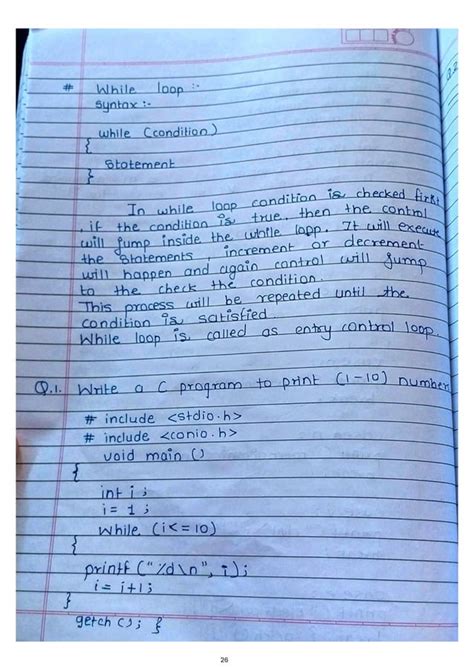 # While loop :-
Syntax :-
while (condition)
{
Statement
}
In while loop condition is checked first
, if the condition is true, then the control
will jump inside the while loop. It will execute
the statements, increment or decrement
will happen and again control will jump
to the check the condition.
This process will be repeated until the
condition is satisfied.
While loop is called as entry control loop.
Q.1. Write a C program to print (1-10) numbers
# include <stdio.h>
# include <conio.h>
void main ()
{
int i ;
i = 1 ;
While (i<=10)
{
printf ("%d\n", i);
i = i+1;
}
getch (); }
26